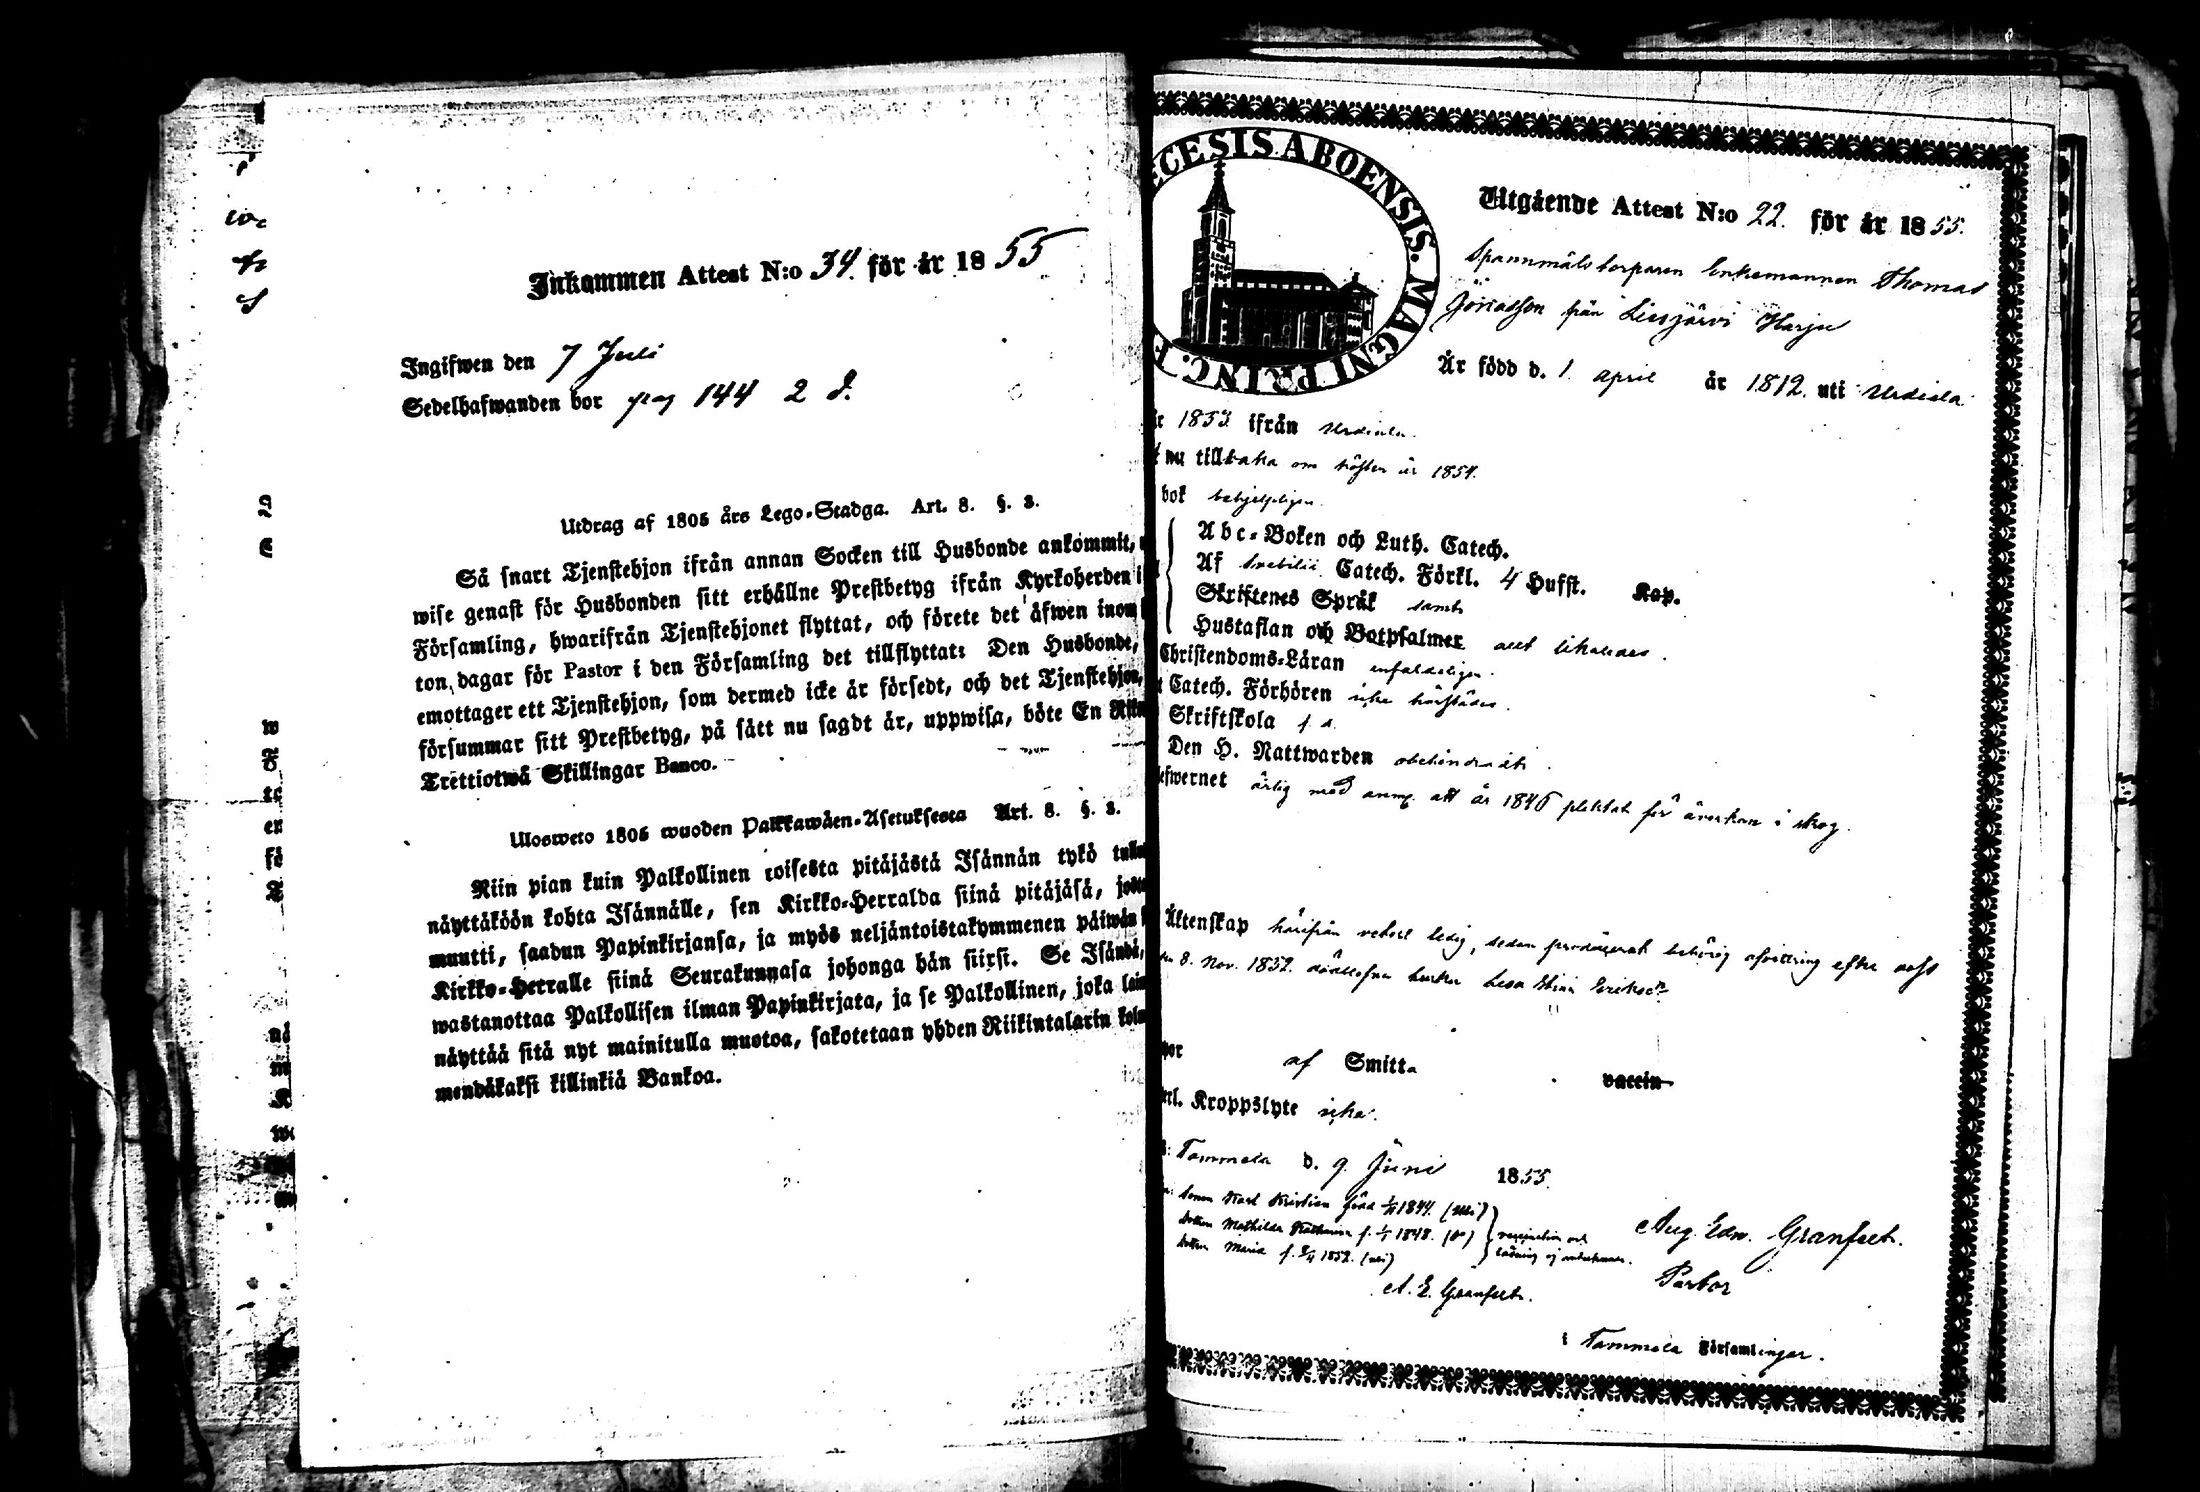 Inkommen Attest N:o 34. för år 1855
Ingifwen den 7 Juli
Sedelhafwanden bor pag 144 2 d.
Utdrag af 1805 års Lego-Stadga. Art. 8. §. 3.
Så snart Tjenstehjon ifrån annan Socken till Husbonde ankommit,
wise genast för Husbonden sitt erhållne Prestbetyg ifrån Kyrkoherden i
Församling, hwarifrån Tjenstehjonet flyttat, och förete det äfwen inom
ton dagar för Pastor i den Församling det tillflyttat: Den Husbonde,
emottager ett Tjenstehjon, som dermed icke är försedt, och det Tjenstehjon,
försummar sitt Prestbetyg, på sätt nu sagdt är, uppwisa, böte En
Trettiotwå Skillingar Banco.
Ulosweto 1805 wuoden Palkkawäen-Asetuksesta Art. 8. §. 3.
Niin pian kuin Palkollinen toisesta pitäjästä Isännän tykö
näyttäköön kohta Isännälle, sen Kirkko-Herralda siinä pitäjäsä,
muutti, saadun Papinkirjansa, ja myös neljäntoistakymmenen päiwän
Kirkko-Herralle siinä Seurakunnasa johonga hän siirsi. Se Isändä,
wastanottaa Palkollisen ilman Papinkirjata, ja se Palkollinen, joka
näyttää sitä nyt mainitulla muotoa, sakotetaan yhden Riikintalarin
mendäkaksi killinkiä Bankoa.
ECESIS ABOENSIS. MAGNI PRINC. F
Utgående Attest N:o 22. för år 1855.
Spannmåls torparen Enkemannen Thomas
från Liesjärvi Harju
Är född d. 1. april år 1812. uti Urdiala
1853 ifrån Urdiala.
nu tillbaka om hösten år 1854.
bok behjelpligen.
Abc-Boken och Luth. Catech.
Af Svebilii Catech. Förkl. 4 Hufst. Kap.
Skriftenes Språk samt
Hustaflan och Botpsalmer allt likaledes.
Christendoms-Läran enfaldeligen.
Catech. Förhören icke härstädes.
Skriftskola f. d.
Den H. Nattwarden obehindradt.
efwernet ärlig med anm. att år 1846 pliktat för åverkan i skog.
Äktenskap härifrån veterl. ledig, sedan producerat behörig afvittring efter
8. Nov. 1852. aflidna hustru Lesa Stina Eriksdr
af Smitta vaccin
erl. Kroppslyte icke.
Tammela d. 9. Juni 1855.
Sonen Karl Kristian född 1844.
dottren Mathilda f. 1848.
dottren Maria f. 1852.
Aug. Edv. Granfelt.
Pastor
A. E. Granfelt.
i Tammela Församlingar.